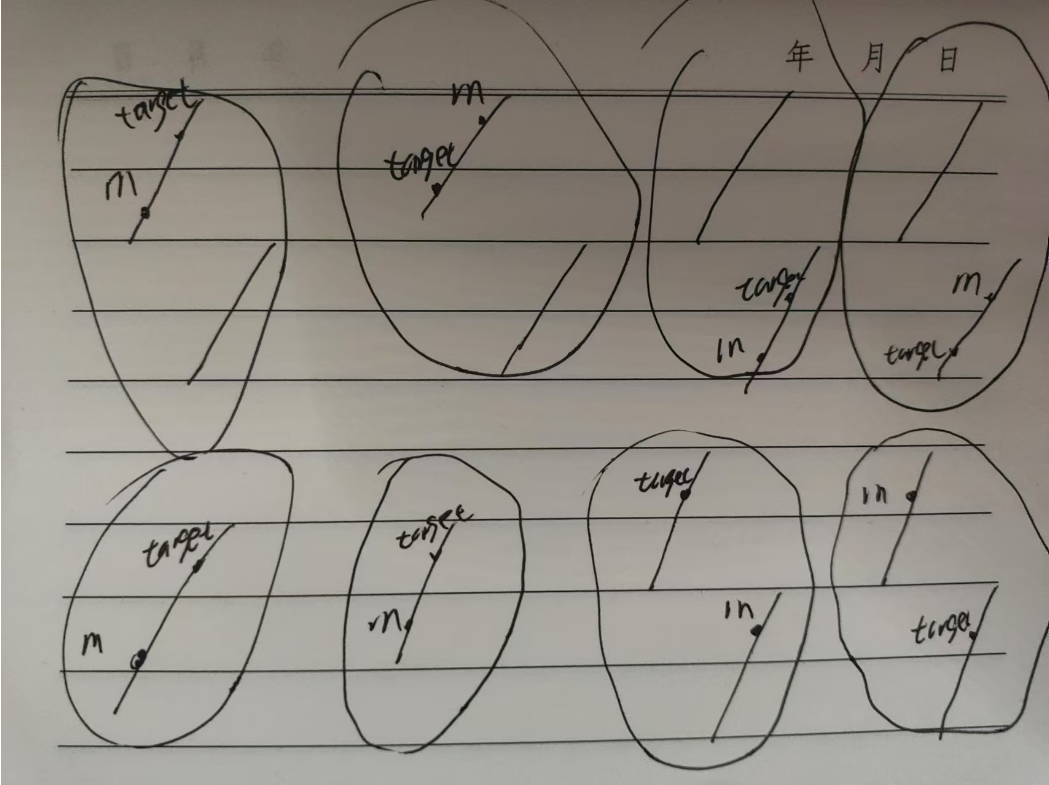 年 月 日
target m
m target
target
m
m target
target target
m
target m
m target
m target